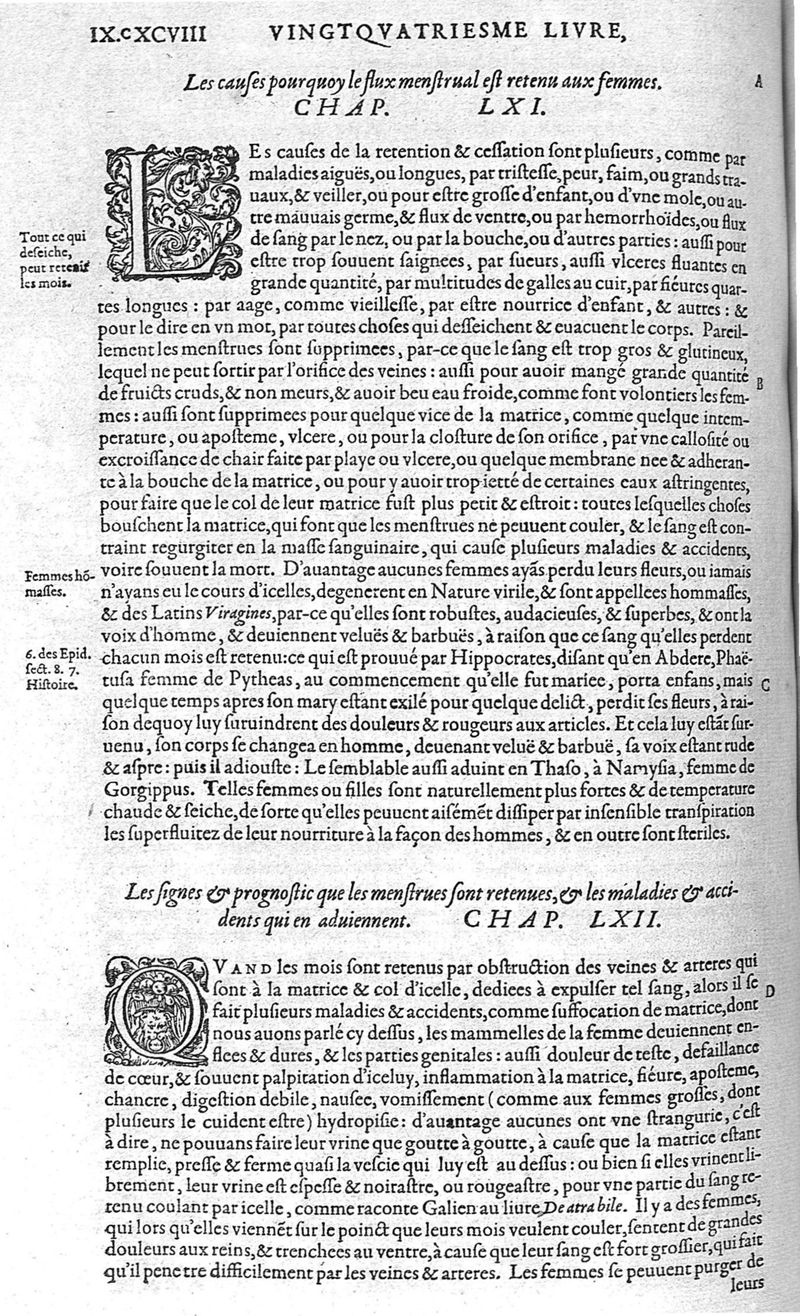 IX.cXCVIII VINGTQVATRIESME LIVRE,
Les cauſes pourquoy le flux menſtrual eſt retenu aux femmes.
A
CHAP. LXI.
LEs cauſes de la retention & ceſſation ſont pluſieurs, comme par
maladies aiguës, ou longues, par triſteſſe, peur, faim, ou grands tra-
uaux, & veiller, ou pour eſtre groſſe d'enfant, ou d'vne mole, ou au-
tre mauuais germe, & flux de ventre, ou par hemorrhoïdes, ou flux
Tout ce qui
deſeiche,
peut retenir
les mois.
de ſang par le nez, ou par la bouche, ou d'autres parties : auſſi pour
eſtre trop ſouuent ſaignees, par ſueurs, auſſi vlceres fluantes en
grande quantité, par multitudes de galles au cuir, par fiéures quar-
tes longues : par aage, comme vieilleſſe, par eſtre nourrice d'enfant, & autres : &
pour le dire en vn mot, par toutes choſes qui deſſeichent & euacuent le corps. Pareil-
lement les menſtrues ſont ſupprimees, par-ce que le ſang eſt trop gros & glutineux,
lequel ne peut ſortir par l'orifice des veines : auſſi pour auoir mangé grande quantité
B
de fruicts cruds, & non meurs, & auoir beu eau froide, comme font volontiers les fem-
mes : auſſi ſont ſupprimees pour quelque vice de la matrice, comme quelque intem-
perature, ou apoſteme, vlcere, ou pour la cloſture de ſon orifice, par vne calloſité ou
excroiſſance de chair faite par playe ou vlcere, ou quelque membrane nee & adheran-
te à la bouche de la matrice, ou pour y auoir trop ietté de certaines eaux aſtringentes,
pour faire que le col de leur matrice fuſt plus petit & eſtroit : toutes leſquelles choſes
bouſchent la matrice, qui font que les menſtrues ne peuuent couler, & le ſang eſt con-
traint regurgiter en la maſſe ſanguinaire, qui cauſe pluſieurs maladies & accidents,
Femmes hō-
maſſes.
voire ſouuent la mort. D'auantage aucunes femmes ayãs perdu leurs fleurs, ou iamais
n'ayans eu le cours d'icelles, degenerent en Nature virile, & ſont appellees hommaſſes,
& des Latins Viragines, par-ce qu'elles ſont robuſtes, audacieuſes, & ſuperbes, & ont la
voix d'homme, & deuiennent veluës & barbuës, à raiſon que ce ſang qu'elles perdent
6. des Epid.
ſect. 8. 7.
Hiſtoire.
chacun mois eſt retenu : ce qui eſt prouué par Hippocrates, diſant qu'en Abdere, Phaë-
tuſa femme de Pytheas, au commencement qu'elle fut mariee, porta enfans, mais
C
quelque temps apres ſon mary eſtant exilé pour quelque delict, perdit ſes fleurs, à rai-
ſon dequoy luy ſuruindrent des douleurs & rougeurs aux articles. Et cela luy eſtãt ſur-
uenu, ſon corps ſe changea en homme, deuenant veluë & barbuë, ſa voix eſtant rude
& aſpre : puis il adiouſte : Le ſemblable auſſi aduint en Thaſo, à Namyſia, femme de
Gorgippus. Telles femmes ou filles ſont naturellement plus fortes & de temperature
chaude & ſeiche, de ſorte qu'elles peuuent aiſémẽt diſſiper par inſenſible tranſpiration
les ſuperfluitez de leur nourriture à la façon des hommes, & en outre ſont ſteriles.
Les ſignes & prognoſtic que les menſtrues ſont retenues, & les maladies & acci-
dents qui en aduiennent. CHAP. LXII.
QVAND les mois ſont retenus par obſtruction des veines & arteres qui
ſont à la matrice & col d'icelle, dediees à expulſer tel ſang, alors il ſe
D
fait pluſieurs maladies & accidents, comme ſuffocation de matrice, dont
nous auons parlé cy deſſus, les mammelles de la femme deuiennent en-
flees & dures, & les parties genitales : auſſi douleur de teſte, defaillance
de cœur, & ſouuent palpitation d'iceluy, inflammation à la matrice, fiéure, apoſteme,
chancre, digeſtion debile, nauſee, vomiſſement (comme aux femmes groſſes, dont
pluſieurs le cuident eſtre) hydropiſie : d'auantage aucunes ont vne ſtrangurie, c'eſt
à dire, ne pouuans faire leur vrine que goutte à goutte, à cauſe que la matrice eſtant
remplie, preſſe & ferme quaſi la veſcie qui luy eſt au deſſus : ou bien ſi elles vrinent li-
brement, leur vrine eſt eſpeſſe & noiraſtre, ou rougeaſtre, pour vne partie du ſang re-
tenu coulant par icelle, comme raconte Galien au liure, De atra bile. Il y a des femmes,
qui lors qu'elles viennẽt ſur le poinct que leurs mois veulent couler, ſentent de grandes
douleurs aux reins, & trenchees au ventre, à cauſe que leur ſang eſt fort groſſier, qui fait
qu'il penetre difficilement par les veines & arteres. Les femmes ſe peuuent purger de
leurs